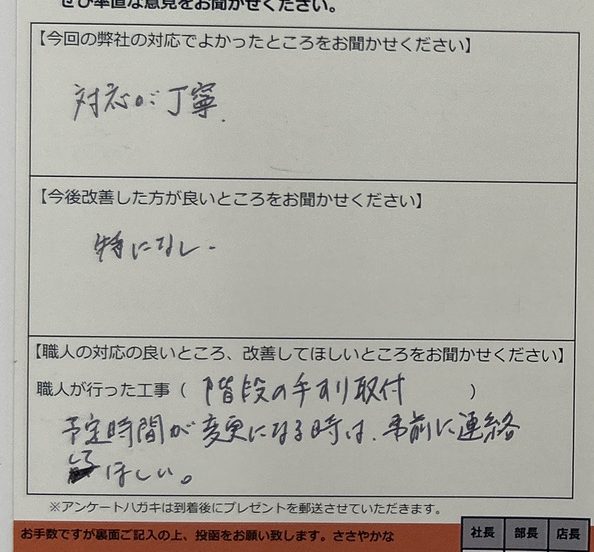 ぜひ率直な意見をお聞かせください。
【今回の弊社の対応でよかったところをお聞かせください】
対応が丁寧.
【今後改善した方が良いところをお聞かせください】
特になし.
【職人の対応の良いところ、改善してほしいところをお聞かせください】
職人が行った工事（ 階段の手すり取付 ）
予定時間が変更になる時は、事前に連絡
してほしい。
※アンケートハガキは到着後にプレゼントを郵送させていただきます。
お手数ですが裏面ご記入の上、投函をお願い致します。ささやかな
社長 部長 店長